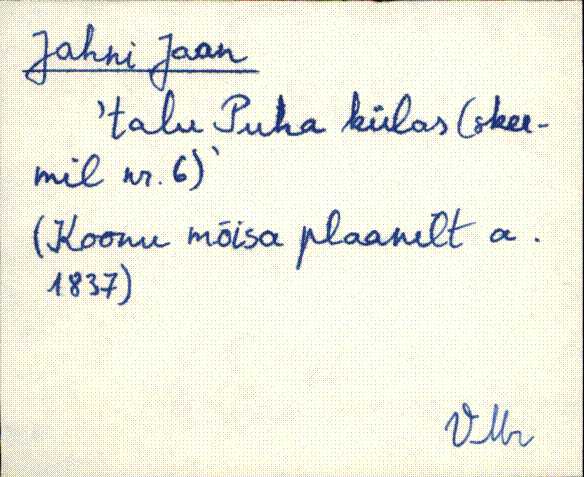 Jahni Jaan
'talu Puha külas (skee-
mil nr. 6)'
(Koonu mõisa plaanilt a.
1837)
VMr